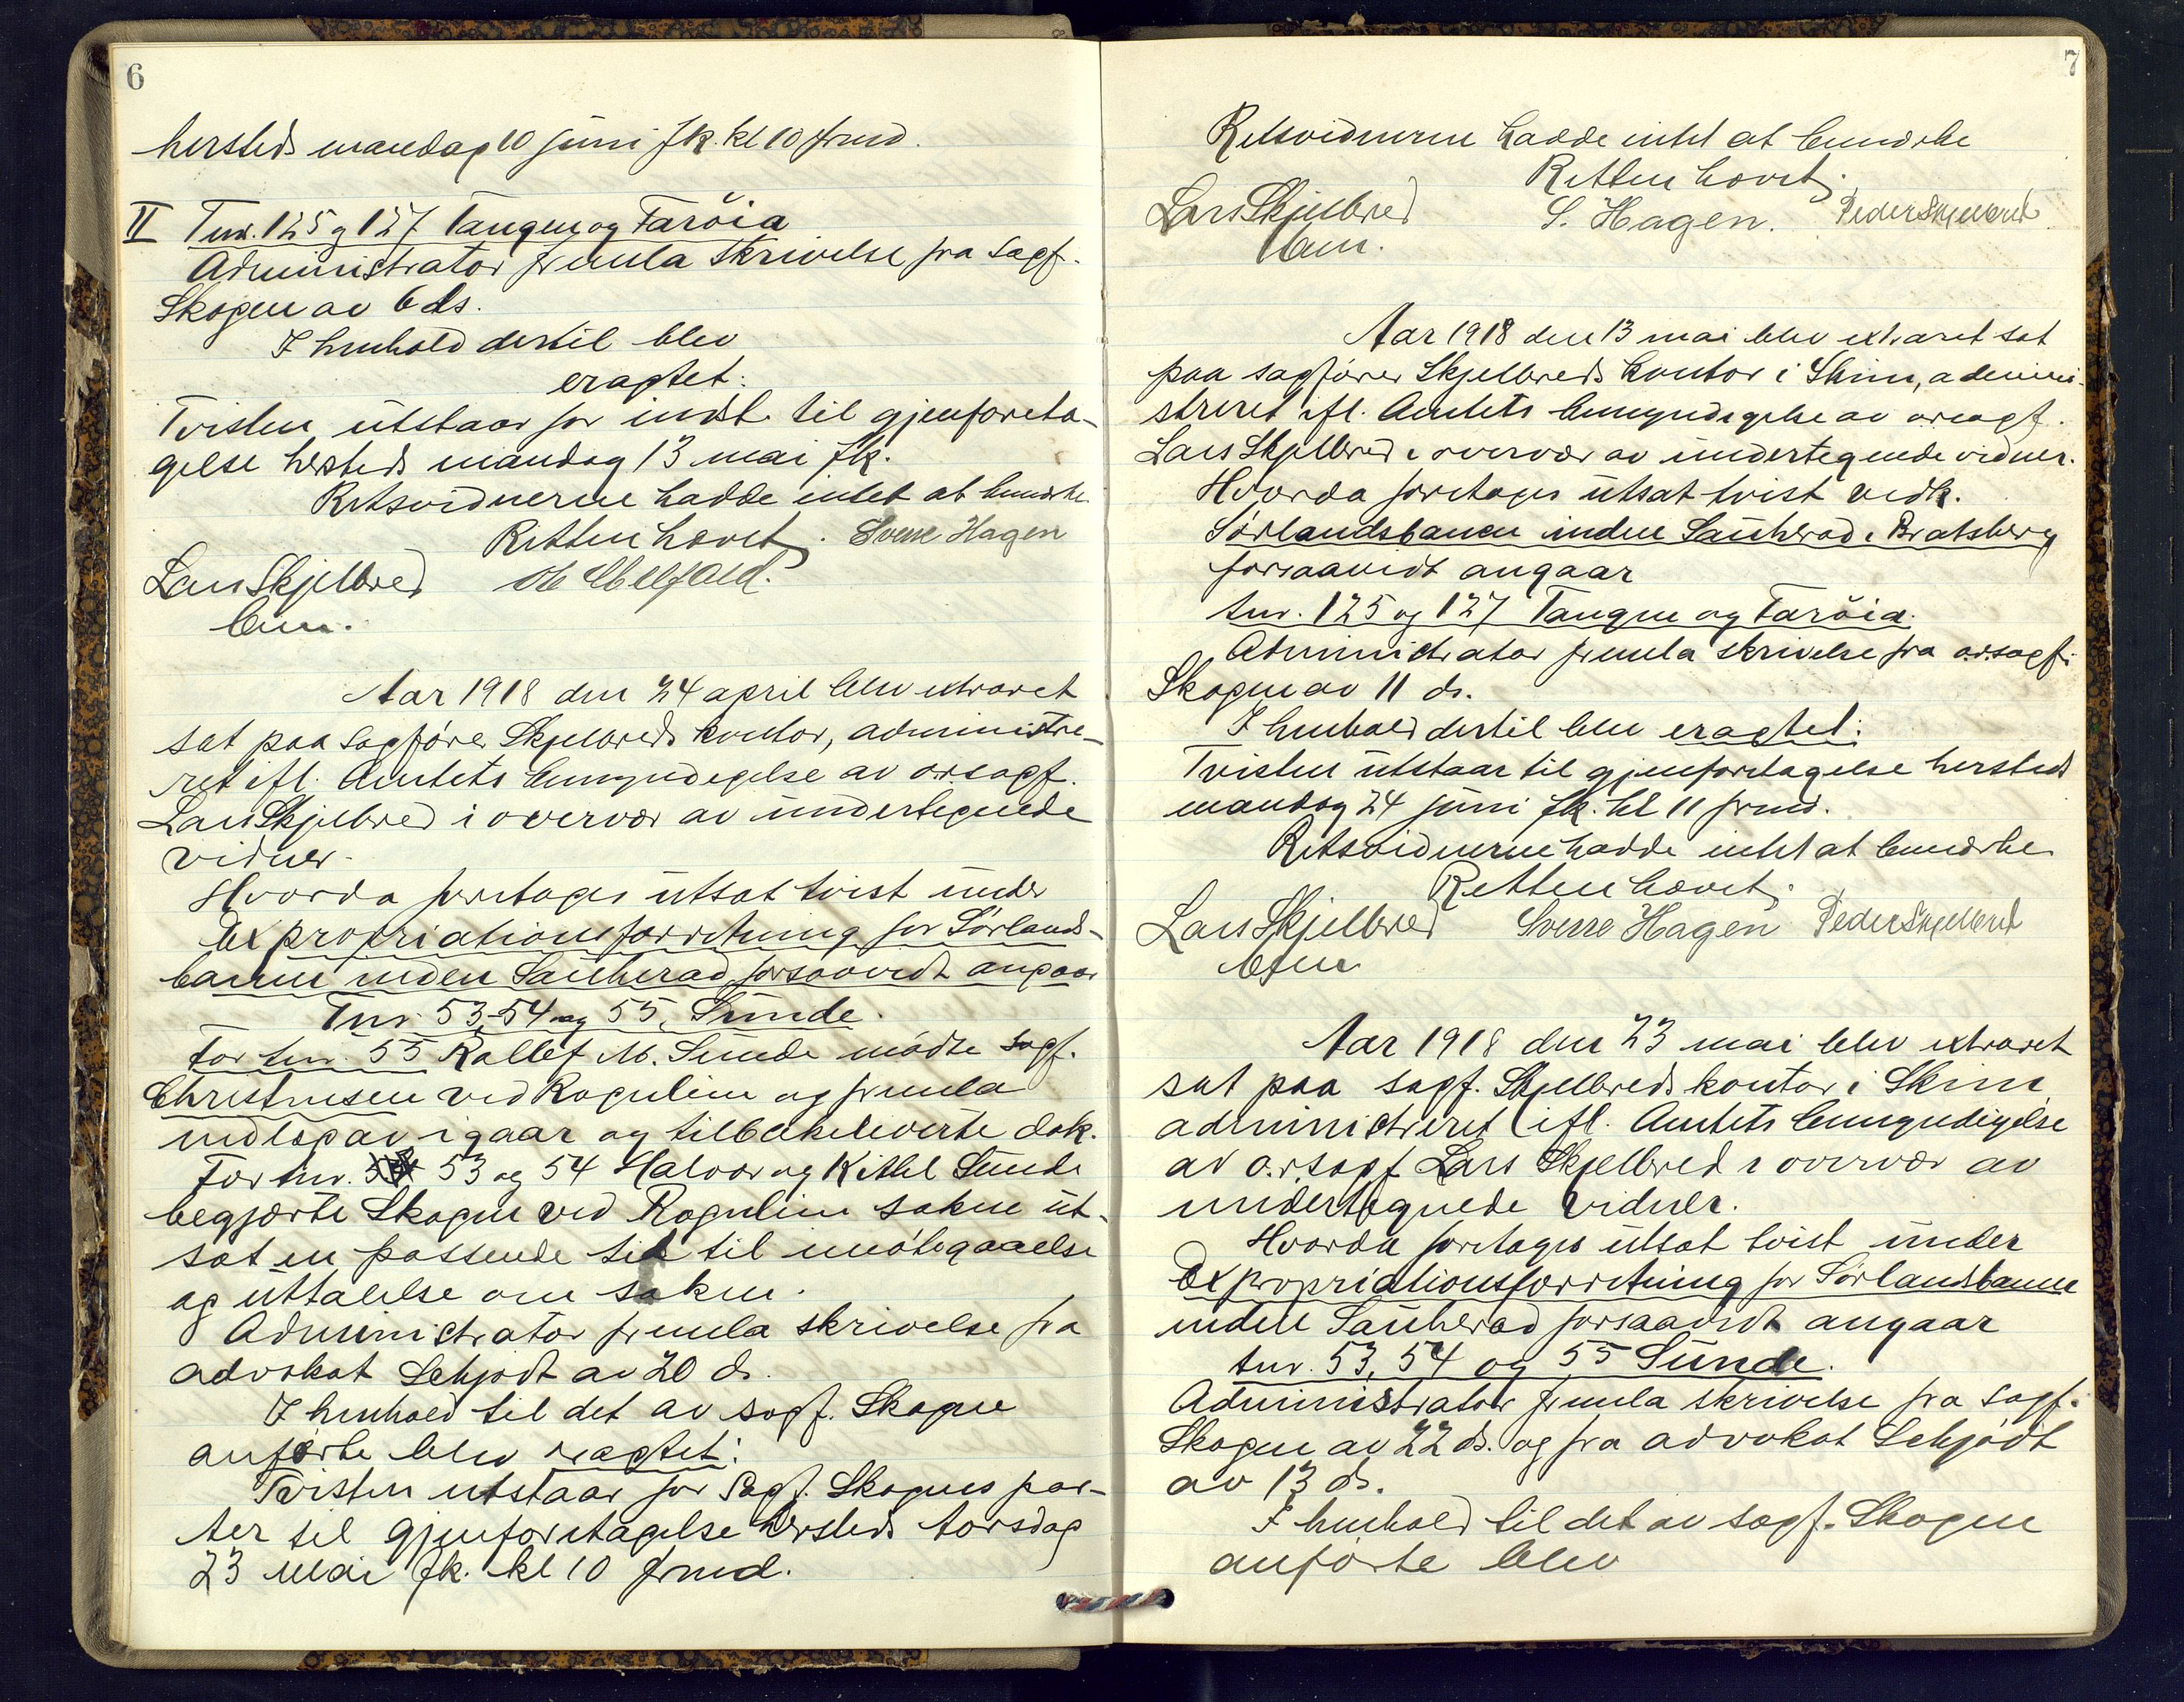 6
hersteds mandag 10 juni fk. kl 10 frmd.
II Tnr. 125 og 127 Tangen og Farøia
Administrator fremla skrivelse fra sagf.
Skogen av 6 ds.
I henhold dertil blev
eragtet:
Tvisten utstaar for indt. til gjenforeta-
gelse hersteds mandag 13 mai fk.
Retsvidnerne hadde intet at bemerke
Retten hævet. Sverre Hagen
Lars Skjelbred
bem.
Aar 1918 den 24 april blev extraret
sat paa sagfører Skjelbreds kontor, administre-
ret ifl. Amtets bemyndigelse av o.r.sagf.
Lars Skjelbred i overvær av undertegnede
vidner.
Hvorda foretoges utsat tvist under
Expropriationsforretning for Sørlands-
banen inden Sauherad forsaavidt angaar
Tnr. 53, 54 og 55, Sunde.
For tnr. 55 Rollef M. Sunde mødte sagf.
Christensen ved Rogulien og fremla
indlæg av igaar og tilbakeleverte dok.
For tnr. 53 og 54 Halvor og Kittel Sunde
begjærte Skogen ved Rogulien saken ut-
sat en passende tid til imøtegaaelse
og uttalelse om saken.
Administrator fremla skrivelse fra
advokat Schjødt av 20 ds.
I henhold til det av sagf. Skogen
anførte blev eragtet:
Tvisten utstaar for sagf. Skogens par-
ter til gjenforetagelse hersteds torsdag
23 mai fk. kl 10 frmd.
7
Retsvidnerne hadde intet at bemerke
Retten hævet.
Lars Skjelbred S. Hagen. Peder Skjelbred
bem.
Aar 1918 den 13 mai blev extraret sat
paa sagfører Skjelbreds kontor i Skien, admini-
streret ifl. Amtets bemyndigelse av o.r.sagf.
Lars Skjelbred i overvær av undertegnede vidner.
Hvorda foretoges utsat tvist vedk.
Sørlandsbanen inden Sauherad i Bratsberg
forsaavidt angaar
tnr. 125 og 127 Tangen og Farøia.
Administrator fremla skrivelse fra o.r.sagf.
Skogen av 11 ds.
I henhold dertil blev eragtet:
Tvisten utstaar til gjenforetagelse hersteds
mandag 24 juni fk. kl 11 frmd.
Retsvidnerne hadde intet at bemerke
Retten hævet.
Lars Skjelbred Sverre Hagen Peder Skjelbred
bem.
Aar 1918 den 23 mai blev extraret
sat paa sagf. Skjelbreds kontor i Skien,
administreret ifl. Amtets bemyndigelse
av o.r.sagf Lars Skjelbred i overvær av
undertegnede vidner.
Hvorda foretoges utsat tvist under
Expropriationsforretning for Sørlandsbanen
inden Sauherad forsaavidt angaar
tnr. 53, 54 og 55 Sunde.
Administrator fremla skrivelse fra sagf.
Skogen av 22 ds. og fra advokat Schjødt
av 13 ds.
I henhold til det av sagf. Skogen
anførte blev